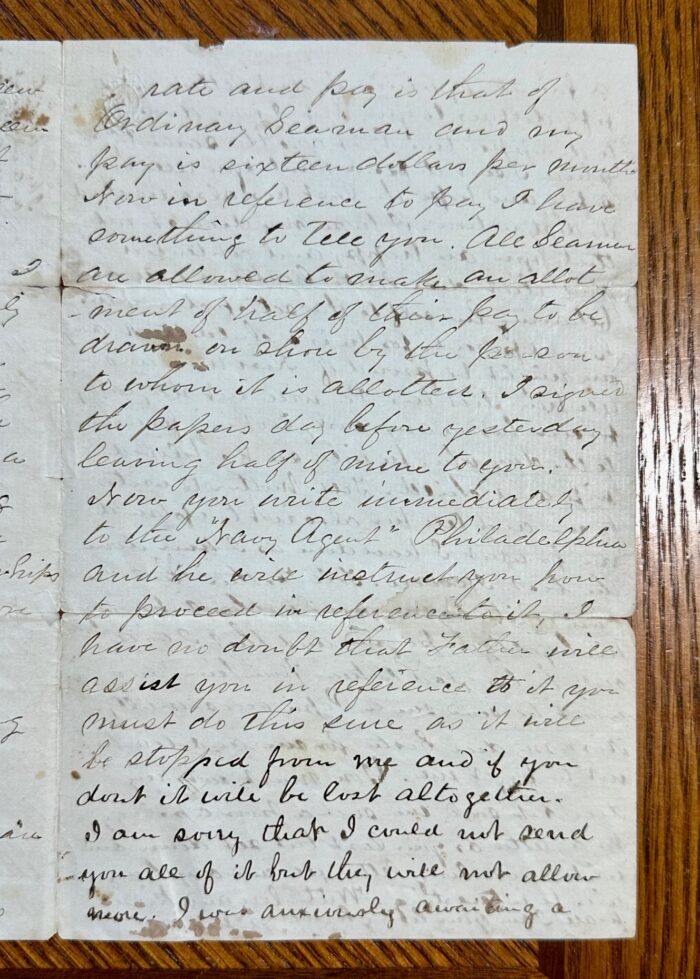 rate and pay is that of
Ordinary Seaman and my
pay is sixteen dollars per month
Now in reference to pay I have
something to tell you. All Seamen
are allowed to make an allot
-ment of half of their pay to be
drawn on shore by the person
to whom it is allotted. I signed
the papers day before yesterday
leaving half of mine to you.
Now you write immediately
to the "Navy Agent" Philadelphia
and he will instruct you how
to proceed in reference to it, I
have no doubt that Father will
assist you in reference to it you
must do this sure as it will
be stopped from me and if you
dont it will be lost altogether.
I am sorry that I could not send
you all of it but they will not allow
more. I was anxiously awaiting a